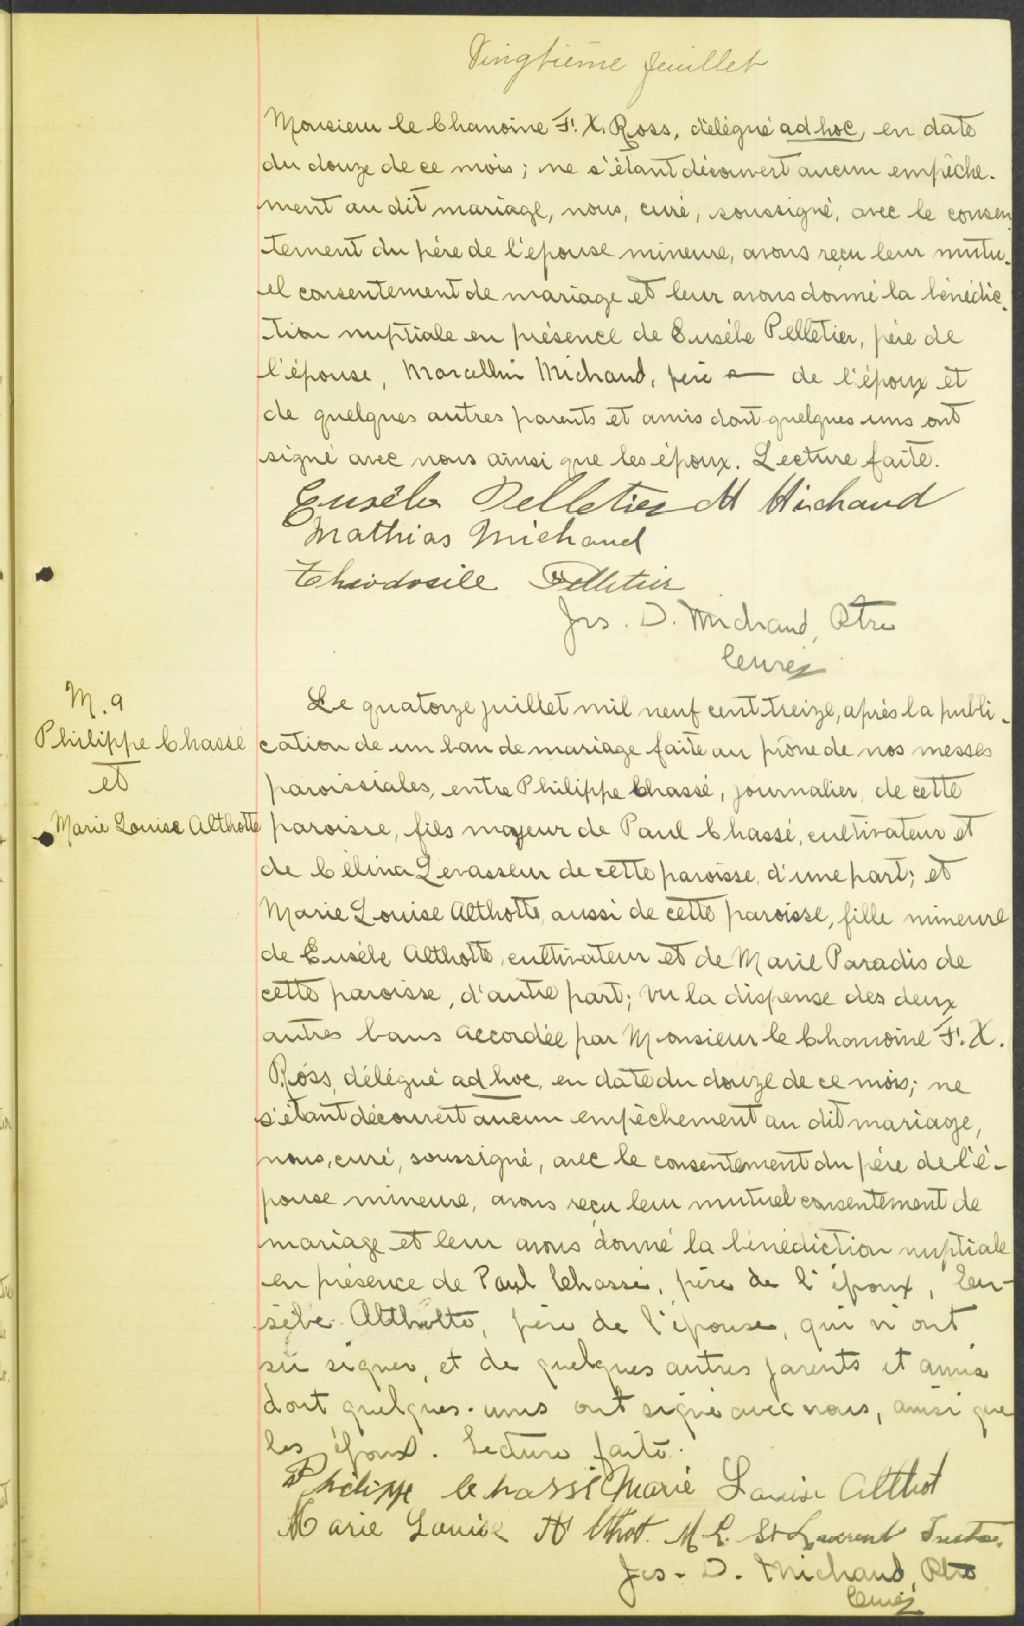 Vingtième feuillet
Monsieur le Chanoine F. X. Ross, délégué ad hoc, en date
du douze de ce mois; ne s'étant découvert aucun empêche-
ment au dit mariage, nous, curé, soussigné, avec le consen
tement du père de l'épouse mineure, avons reçu leur mutu-
el consentement de mariage et leur avons donné la bénédic-
tion nuptiale en présence de Eusèbe Pelletier, père de
l'épouse, Marcellin Michaud, père de l'époux et
de quelques autres parents et amis dont quelques uns ont
signé avec nous ainsi que les époux. Lecture faite.
Eusèbe Pelletier M Michaud
Mathias Michaud
Pelletier
Jos. D. Michaud, Ptre
Curé
M. 9
Philippe Chassé
et
Marie Louise Althotte
Le quatorze juillet mil neuf cent treize, après la publi-
cation de un ban de mariage faite au prône de nos messes
paroissiales, entre Philippe Chassé, journalier de cette
paroisse, fils majeur de Paul Chassé, cultivateur et
de Célina Levasseur de cette paroisse, d'une part; et
Marie Louise Althotte, aussi de cette paroisse, fille mineure
de Eusèbe Althotte, cultivateur et de Marie Paradis de
cette paroisse, d'autre part; vu la dispense des deux
autres bans accordée par Monsieur le Chanoine F. X.
Ross, délégué ad hoc, en date du douze de ce mois; ne
s'étant découvert aucun empêchement au dit mariage,
nous, curé, soussigné, avec le consentement du père de l'é-
pouse mineure, avons reçu leur mutuel consentement de
mariage et leur avons donné la bénédiction nuptiale
en présence de Paul Chassé, père de l'époux, Eu-
sèbe Althotte, père de l'épouse, qui n'ont
su signer, et de quelques autres parents et amis
dont quelques-uns ont signé avec nous, ainsi que
les époux. Lecture faite.
Philippe Chassé Marie Louise Althot
Marie Louise Althot. M. L. St Laurent
Jos. D. Michaud, Ptre
Curé